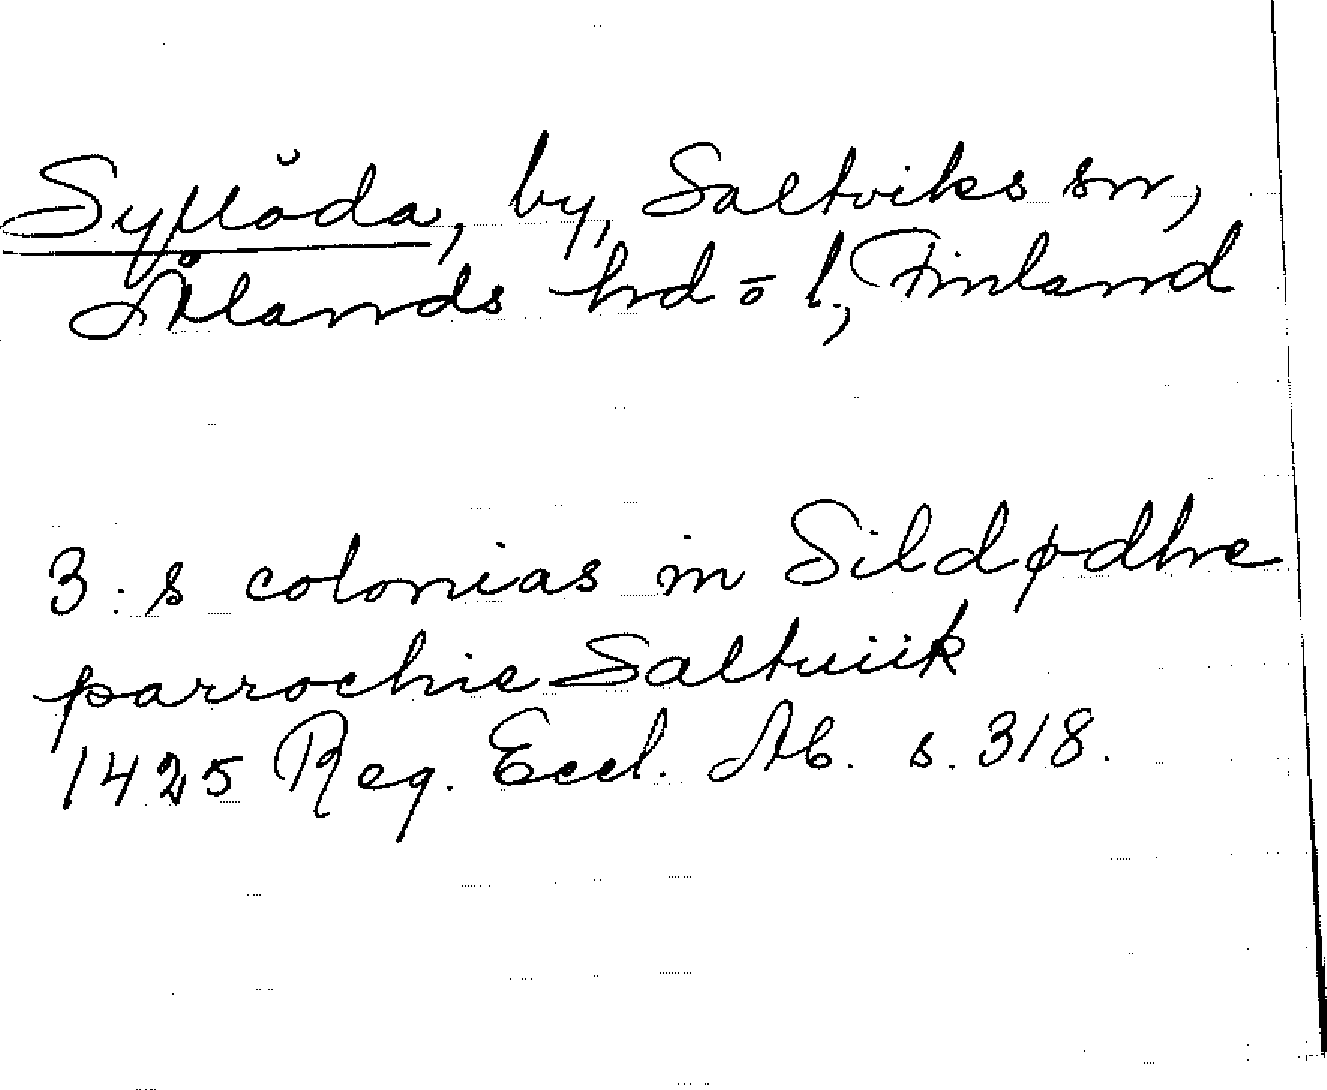 Syllöda, by, Saltviks sn,
Ålands hd o l., Finland
3:s colonias in Sildødhe
parrochie Saltuiik
1425 Reg. Eccl. Ab. s. 318.